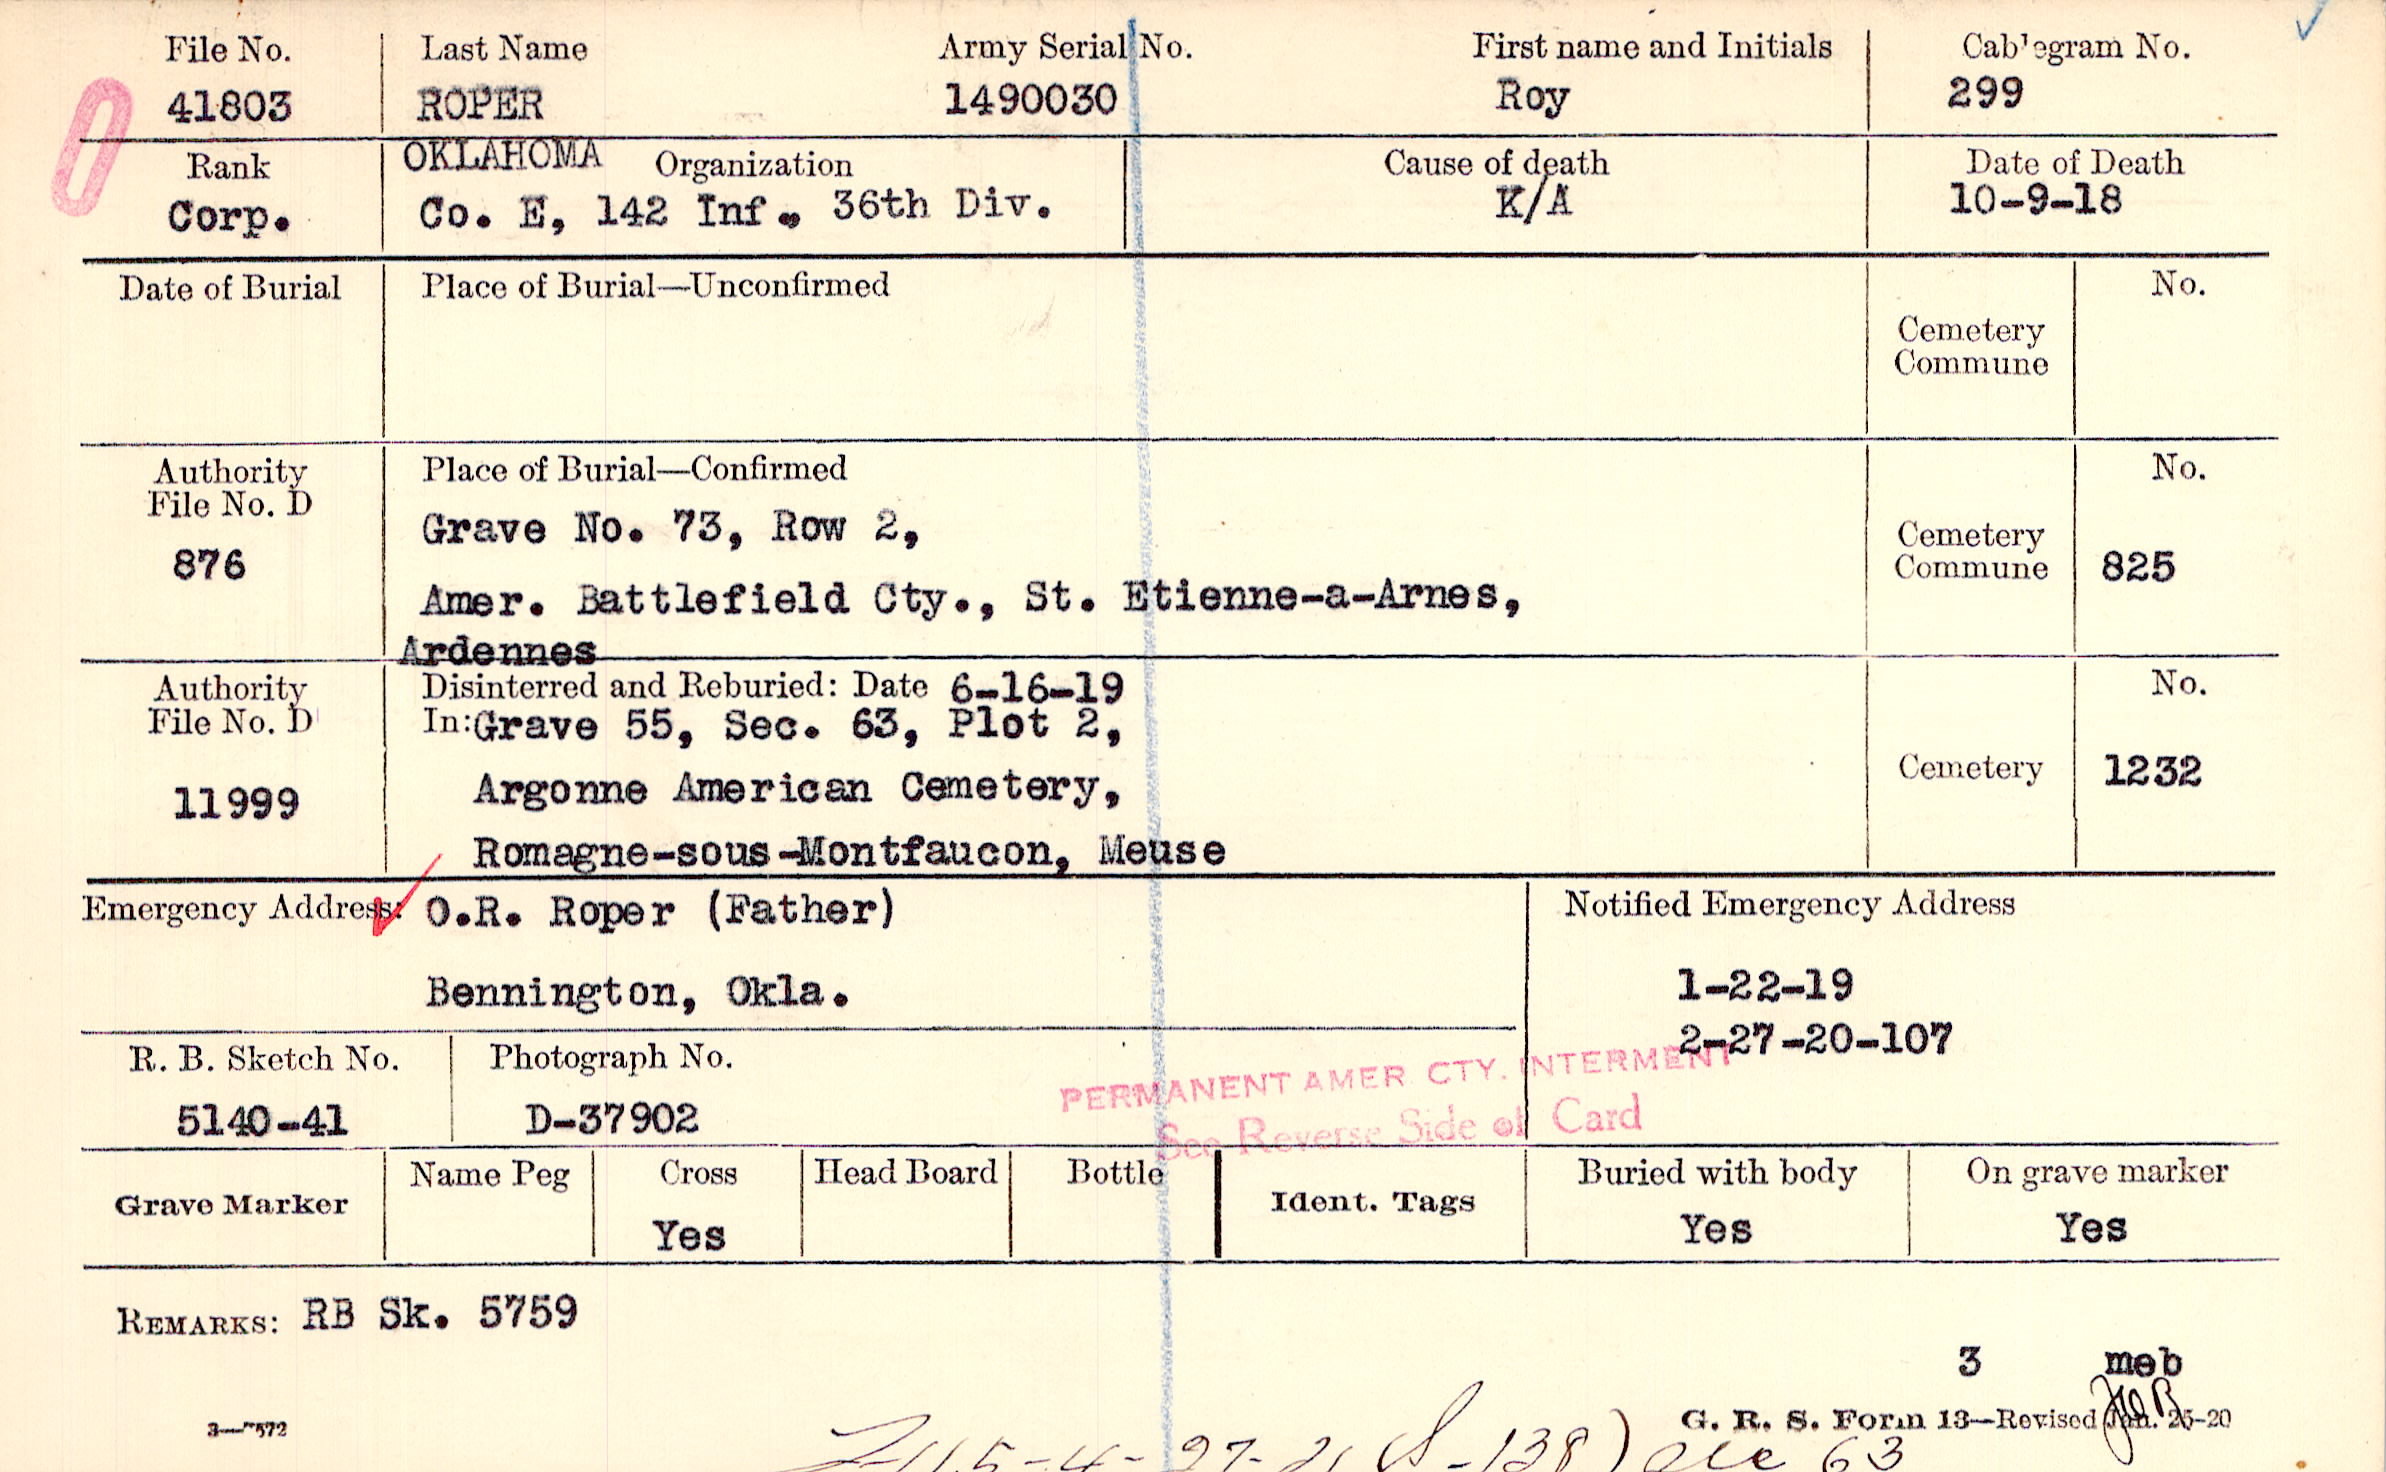 File No. Last Name Army Serial No. First name and Initials Cablegram No.
41803 ROPER 1490030 Roy 299
Rank OKLAHOMA Organization Cause of death Date of Death
Corp. Co. E, 142 Inf. 36th Div. K/A 10-9-18
Date of Burial Place of Burial—Unconfirmed No.
Cemetery
Commune
Authority Place of Burial—Confirmed No.
File No. D
Grave No. 73, Row 2,
876 Cemetery
Commune 825
Amer. Battlefield Cty., St. Etienne-a-Arnes,
Ardennes
Authority Disinterred and Reburied: Date 6-16-19 No.
File No. D In: Grave 55, Sec. 63, Plot 2,
11999 Argonne American Cemetery, Cemetery 1232
Romagne-sous-Montfaucon, Meuse
Emergency Address: O.R. Roper (Father) Notified Emergency Address
Bennington, Okla. 1-22-19
2-27-20-107
R. B. Sketch No. Photograph No.
5140-41 D-37902
PERMANENT AMER CTY. INTERMENT
See Reverse Side of Card
Grave Marker Name Peg Cross Head Board Bottle Ident. Tags Buried with body On grave marker
Yes Yes Yes
REMARKS: RB Sk. 5759
3 meb
3—7572 G. R. S. Form 13—Revised Jan. 25-20
4-27-21 (S-138) 63